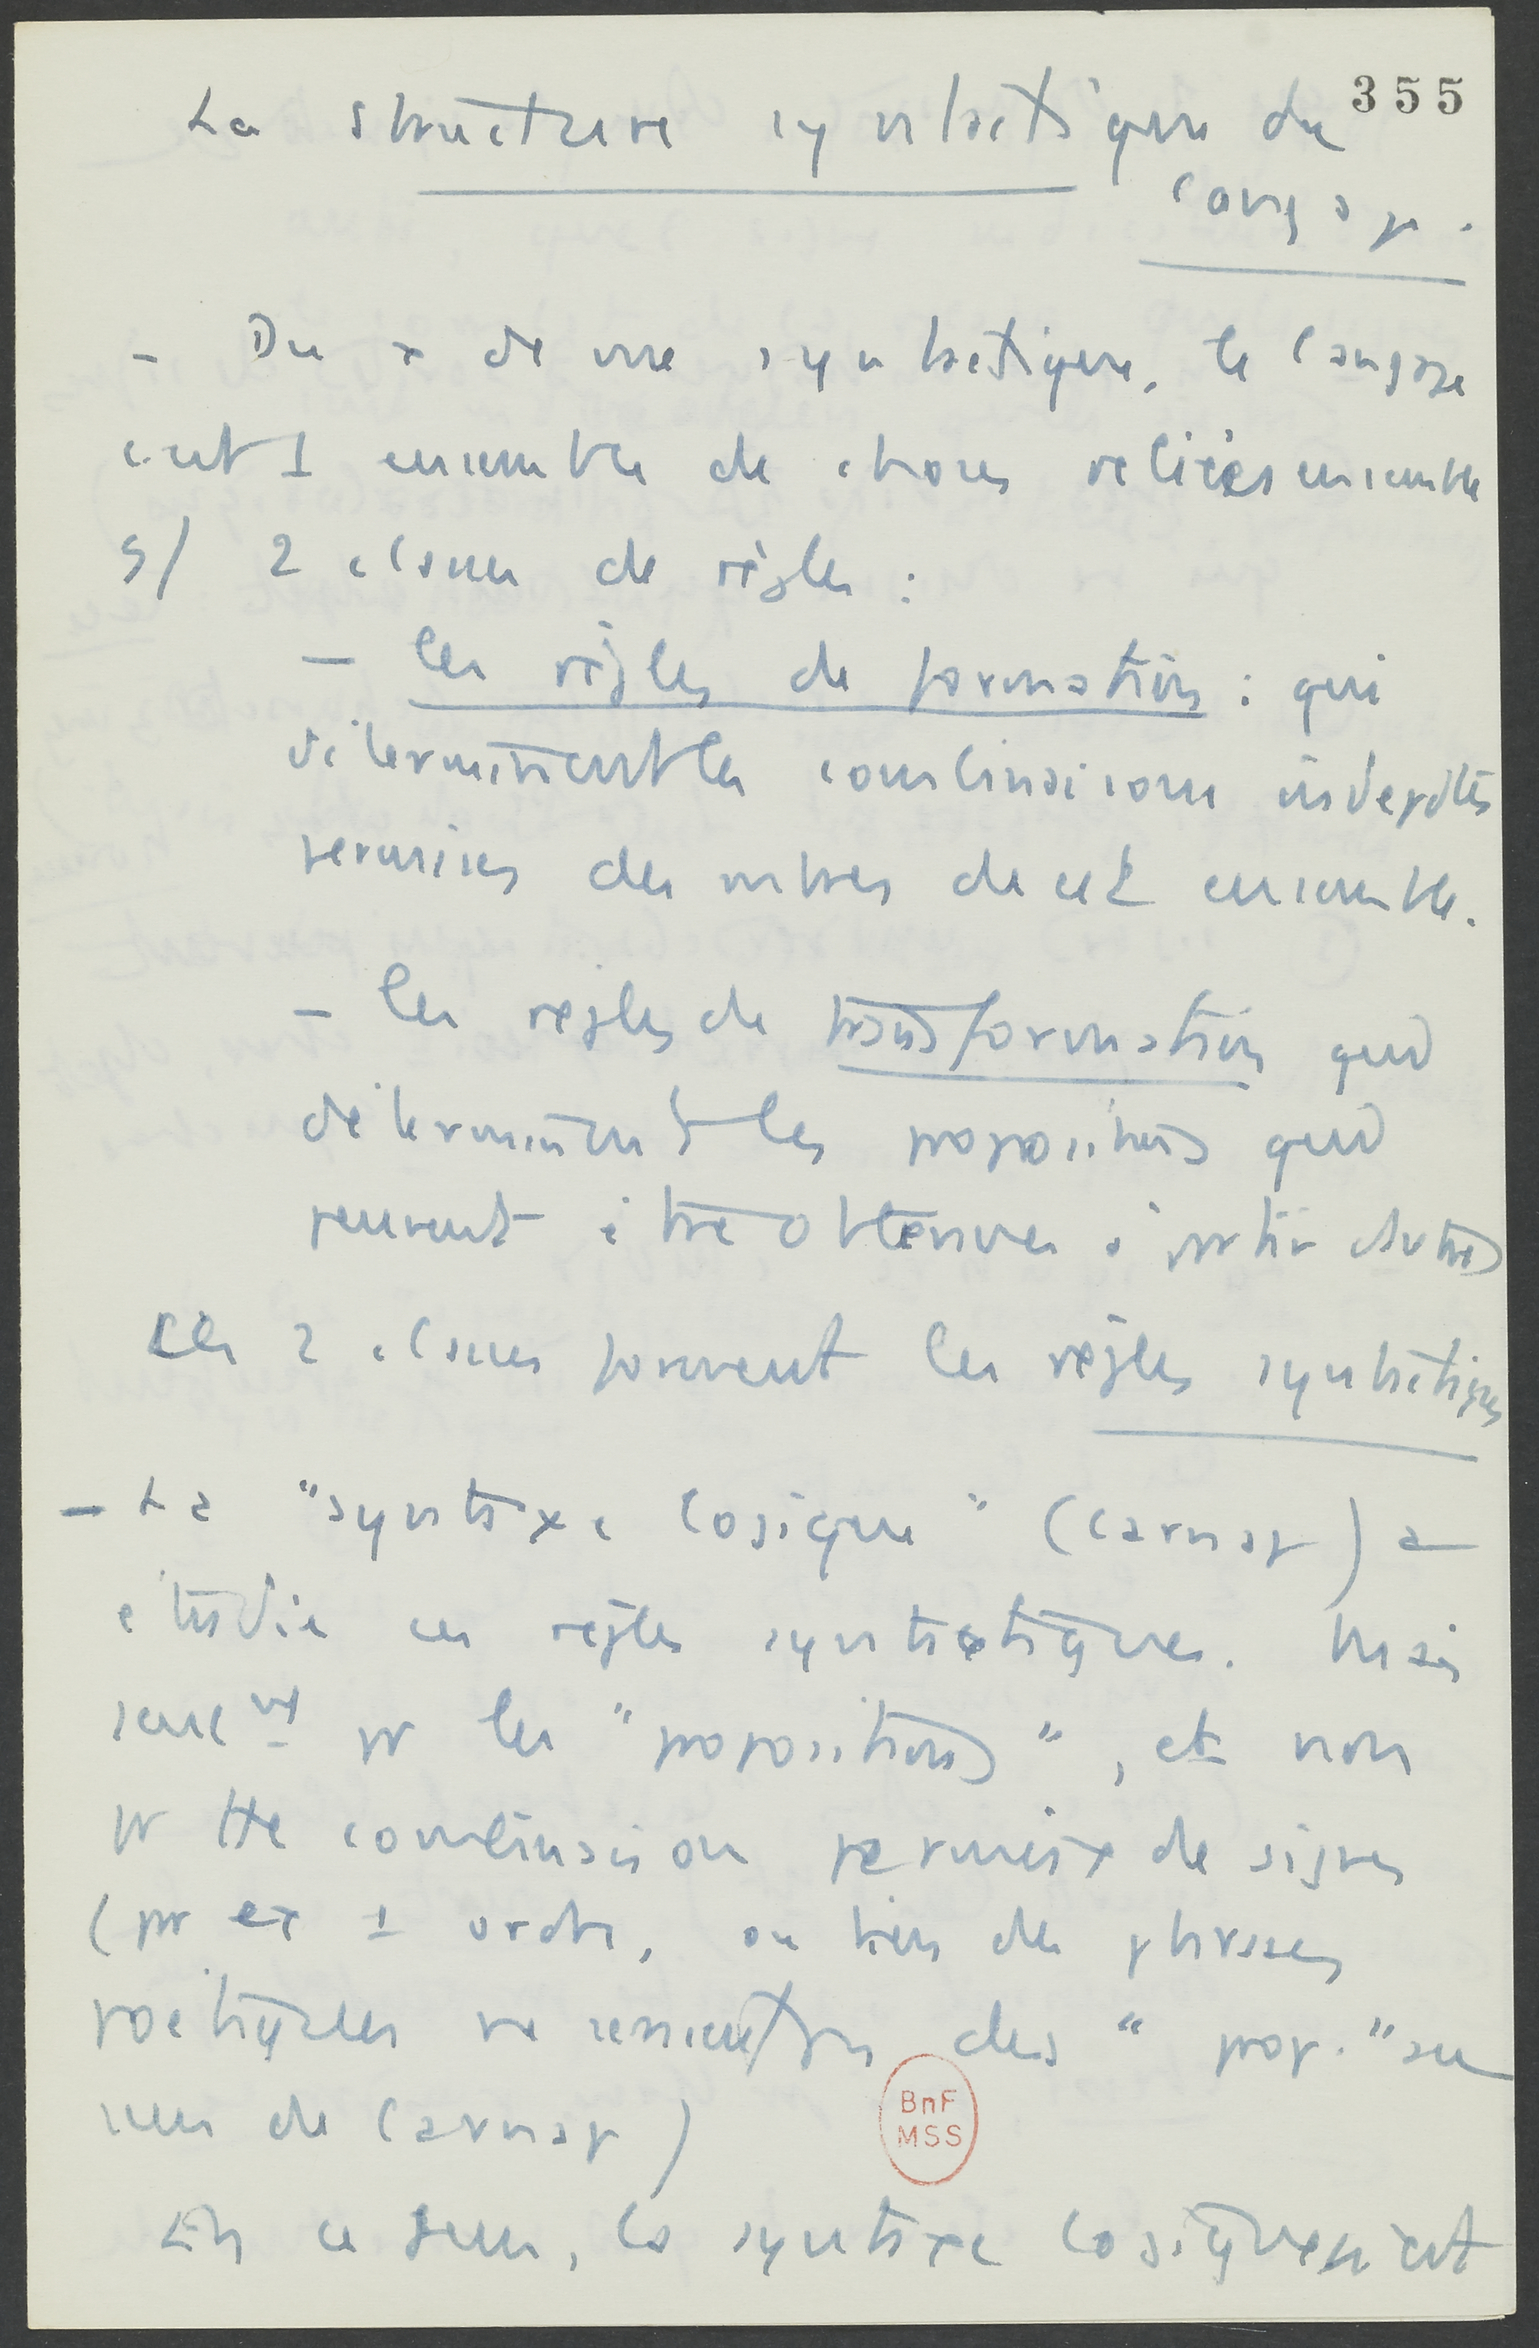 355
La structure syntactique du
langage.
- Du x de vue syntactique, le langage
c'est 1 ensemble de choses reliées ensemble
s/ 2 classes de règles :
- les règles de formation : qui
déterminent les combinaisons indepdtes
permises des mbres de cet ensemble.
- les règles de transformation qui
déterminent les propositions qui
peuvent être obtenues à partir d'autres
Ces 2 classes forment les règles syntactiques
- La "syntaxe logique" (Carnap) a
étudié ces règles syntactiques. Mais
seulmt pr les "propositions", et non
pr tte combinaison permise de signes
(pr ex 1 ordre, ou bien des phrases
poétiques ne seraient pas des "prop." au
sens de Carnap)
En ce sens, la syntaxe logique est
BnF
MSS